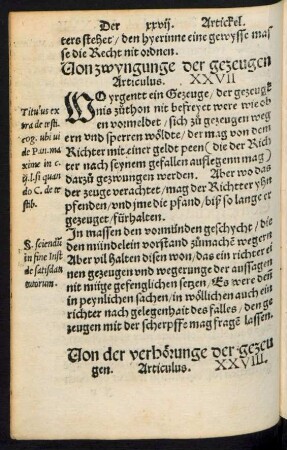 Der xxvij. Artickel.
ters stehet / den hyerinne eine gewysse mas
se die Recht nit ordnen.
Von zwyngunge der gezeugen
Articulus. XXVII
WO yrgentt ein Gezeuge / der gezeugk
nis zůthon nit befreyet were wie ob
en vormeldet / sich zů gezeugen weg
ern vnd sperren wöldte / der mag von dem
Richter mit einer geldt peen (die der Rich
ter nach seynem gefallen auflegenn mag)
darzů gezwungen werden. Aber wo das
der zeuge verachtet / mag der Richter yhn
pfenden / vnd jme die pfand / biß so lange er
gezeuget / fürhalten.
In massen den vormünden geschycht / die
den mündelein vorstand zůmachē wegern
Aber vil halten disen won / das ein richter ei
nen gezeugen vnd wegerunge der aussagen
nit müge gefenglichen setzen / Es were denn
in peynlichen sachen / in wöllichen auch ein
richter nach gelegenhait des falles / den ge
zeugen mit der scherpffe mag fragē lassen.
Von der verhörunge der gezeu
gen. Articulus. XXVIII.
Titulus ex
tra de testi.
cog. vbi vi
de Pan. ma
xime in c.
ij. l. si quan
do C. de te
stib.
§. sciendū
in fine Insti
de satisdan
tworum.